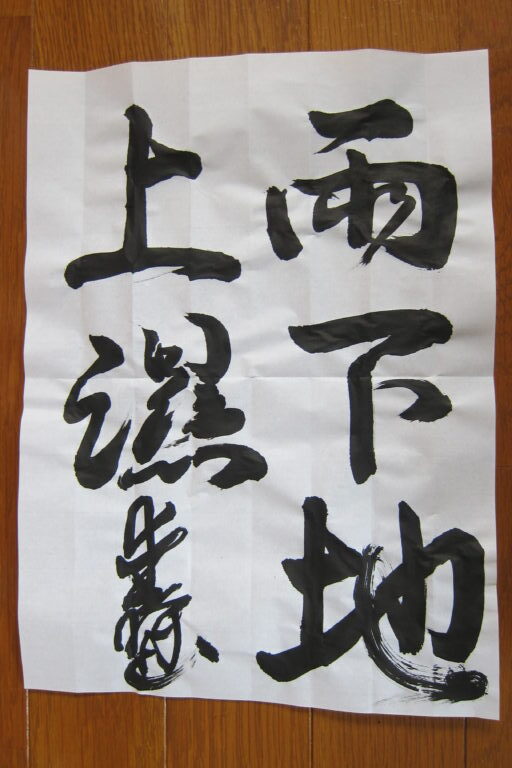 雨下地
上湿